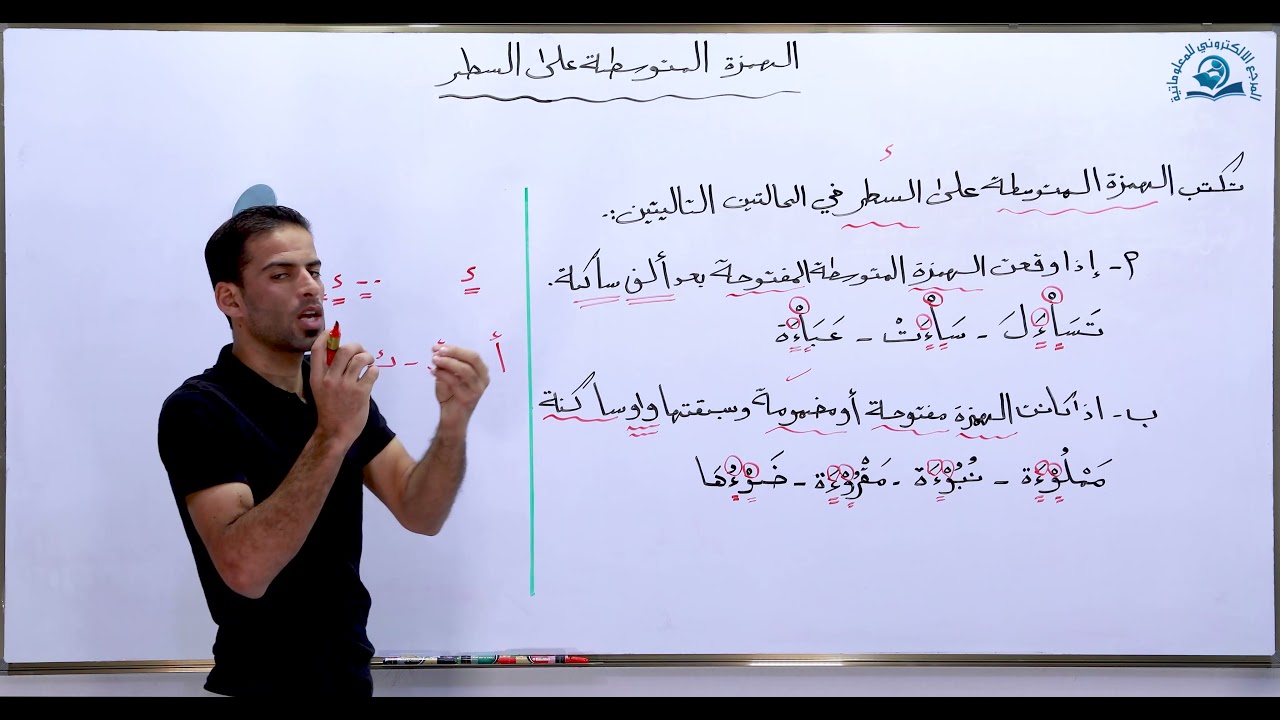 الهمزة المتوسطة على السطر
المرجع الالكتروني للمعلوماتية
ء
تكتب الهمزة المتوسطة على السطر في الحالتين التاليتين:.
٢- إذا وقعت الهمزة المتوسطة المفتوحة بعد ألف ساكنة.
تَسَاْءَلَ - سَاْءَتْ - عَبَاْءَة
ب- اذا كانت الهمزة مفتوحة أو مضمومة وسبقتها واو ساكنة
مَمْلُوْءَة - نُبُوْءَة - مَقْرُوْءَة - ضَوْءُهَا
ء -- ء
أ